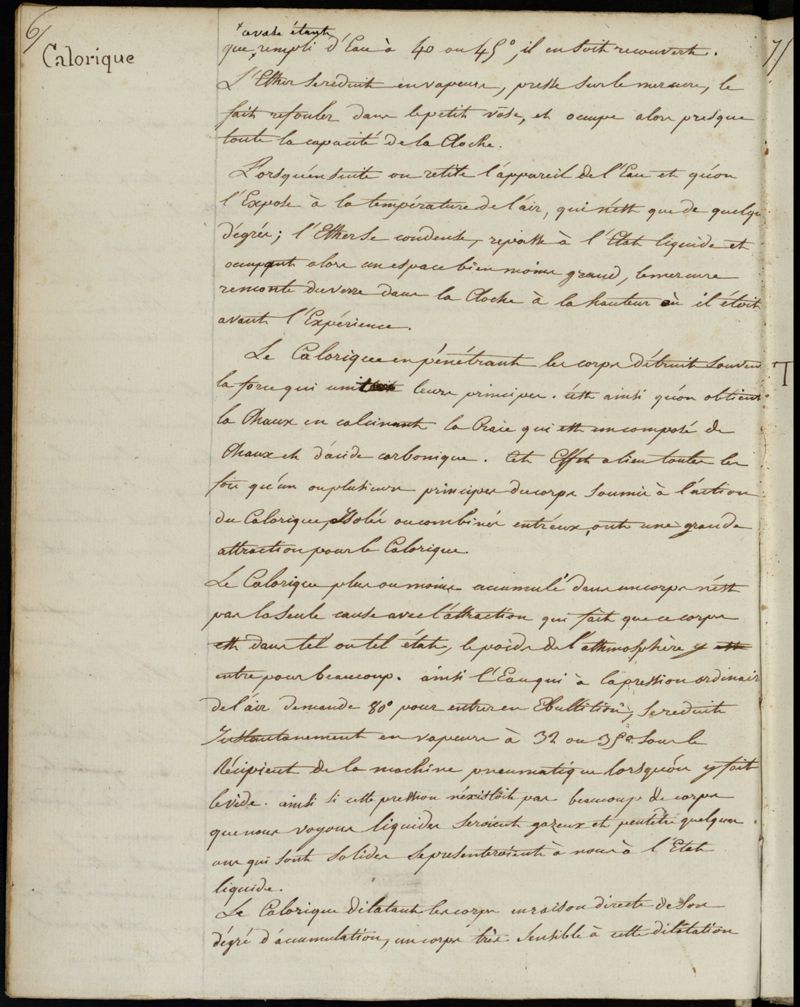 6/
Calorique
+ ce vase étant
que, rempli d'Eau à 40 ou 45°, il en soit recouvert.
L'Ether se reduit en vapeurs, presse sur le mercure, le
fait refouler dans le petit vase, et occupe alors presque
toute la capacité de la Cloche.
Lorsqu'ensuite on retire l'appareil de l'Eau et qu'on
l'Expose à la température de l'air, qui n'est que de quelqu
dégrés; l'Ether se condense, repasse à l'Etat liquide et
occupant alors un espace bien moins grand, le mercure
remonte du verre dans la Cloche à la hauteur où il étoit
avant l'Expérience.
Le Calorique en pénétrant les corps détruit souven
la force qui unit leurs principes. c'est ainsi qu'on obtient
la Chaux en calcinant la Craie qui est un composé de
Chaux et d'acide carbonique. Cet Effet a lieu toutes les
fois qu'un ou plusieurs principes du corps soumis à l'action
du Calorique, Isolés ou combinés entr'eux, ont une grande
attraction pour le Calorique
Le Calorique plus ou moins accumulé dans un corps n'est
pas la seule cause avec l'attraction qui fait que ce corps
est dans tel ou tel état, le poids de l'athmosphère y
entre pour beaucoup. ainsi l'Eau qui à la pression ordinair
de l'air demande 80° pour entrer en Ebullition, se reduit
Instantanement en vapeurs à 32 ou 35° sous le
Récipient de la machine pneumatique lorsqu'on y fait
le vide. ainsi si cette pression n'existoit pas beaucoup de corps
que nous voyons liquides seroient gazeux et peutêtre quelques
uns qui sont solides se presenteroient à nous à l'Etat
liquide.
Le Calorique dilatant les corps en raison directe de son
dégré d'accumulation, un corps très sensible à cette dilatation
7/
T